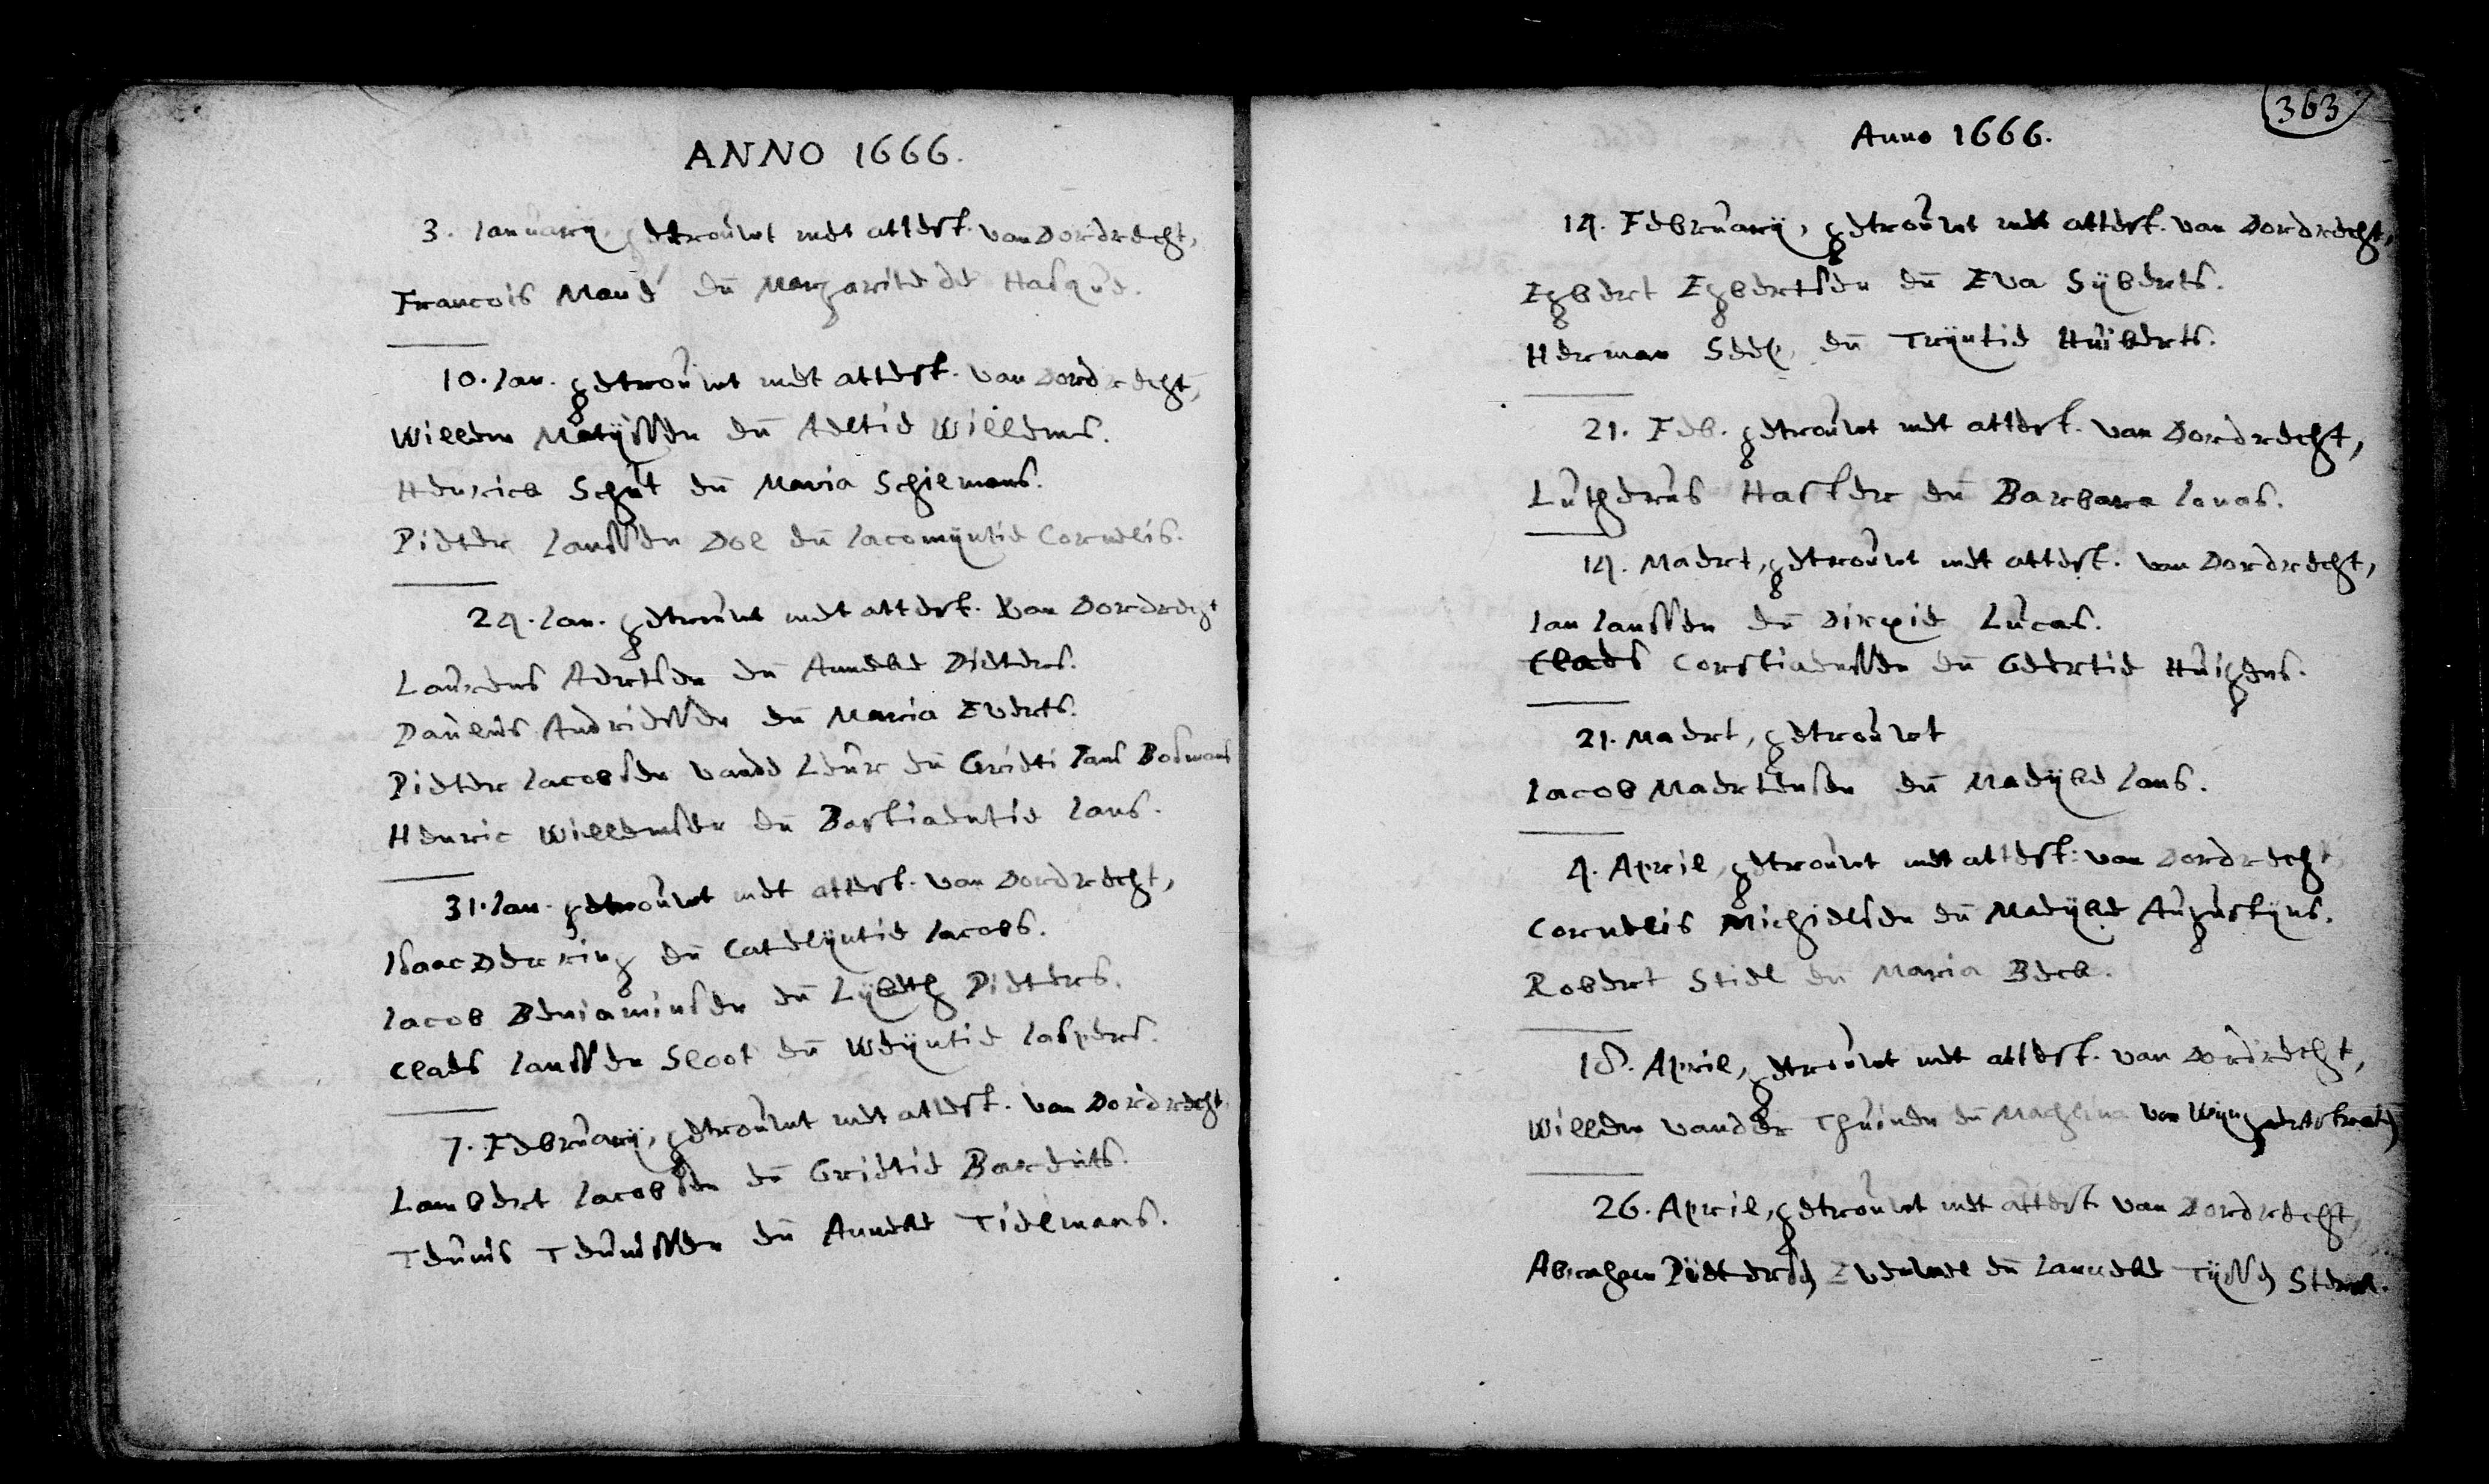 ANNO 1666.
3. Ianuary, getrouwt met attest. van Dordrecht,
Francois Maué en Margarite de Hasque.
10. Ian. getrouwt met attest. van Dordrecht,
Willem Matyssen en Aeltie Willems.
Henrick Schut en Maria Schilmans.
Pieter Ianssen Dol en Iacomyntie Cornelis.
24. Ian. getrouwt met attest. van Dordrecht
Laurens Aertsen en Anneke Pieters.
Paulus Andriessen en Maria Everts.
Pieter Iacobsen vande Leur en Grieti Ians Bosmans
Henric Willemsen en Bastiaentie Ians.
31. Ian. getrouwt met attest. van Dordrecht,
Isaac Derking en Catelyntie Iacobs.
Iacob Beniaminsen en Lysbeth Pieters.
Claes Ianssen Sloot en Weyntie Iaspers.
7. February, getrouwt met attest. van Dordrecht,
Lambert Iacobsen en Grietie Barents.
Teunis Teunissen en Anneke Tielmans.
363
Anno 1666.
14. February, getrouwt met attest. van Dordrecht,
Egbert Egbertsen en Eva Syberts.
Herman en Tryntie Huiberts.
21. Feb. getrouwt met attest. van Dordrecht,
Lutherus Hasker en Barbara Ionas.
14. Maert, getrouwt met attest. van Dordrecht,
Ian Ianssen en Dirxie Lucas.
Claes Corstiaenssen en Geertie Huigens.
21. Maert, getrouwt
Iacob Maertensen en Maeyke Ians.
4. April, getrouwt met attest. van Dordrecht
Cornelis Michielsen en Maeyke Augustyns.
Robert Stiel en Maria Beck.
18. April, getrouwt met attest. van Dordrecht,
Willem vander Thuinen en Machlina van
26. April, getrouwt met attest. van Dordrecht,
Abraham Pieters Evenwel en Ianneke Sterck.